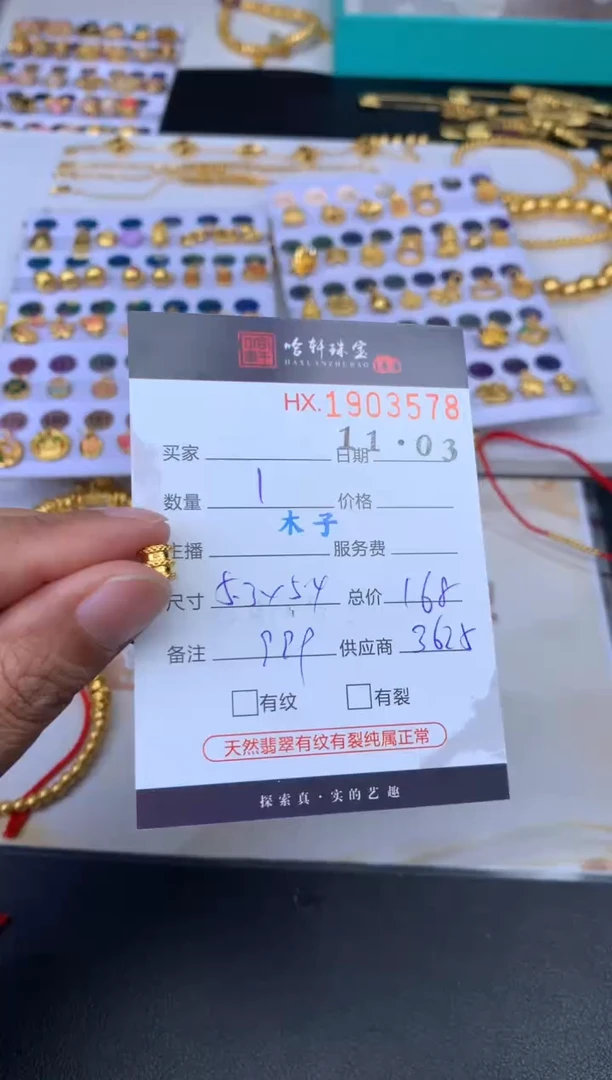 哈轩珠宝
HAXUANZHUBAO
HX.1903578
11·03
买家 日期
数量 1 价格
木子
主播 服务费
尺寸 5.3×5.4 总价 168
备注 999 供应商 3628
有纹 有裂
天然翡翠有纹有裂纯属正常
探索真·实的艺趣